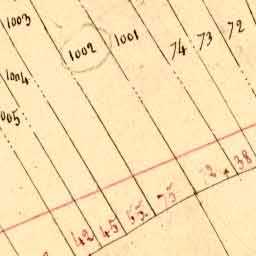 1003
1002 1001 74 73 72
1004
1005
42 45 55 75 38